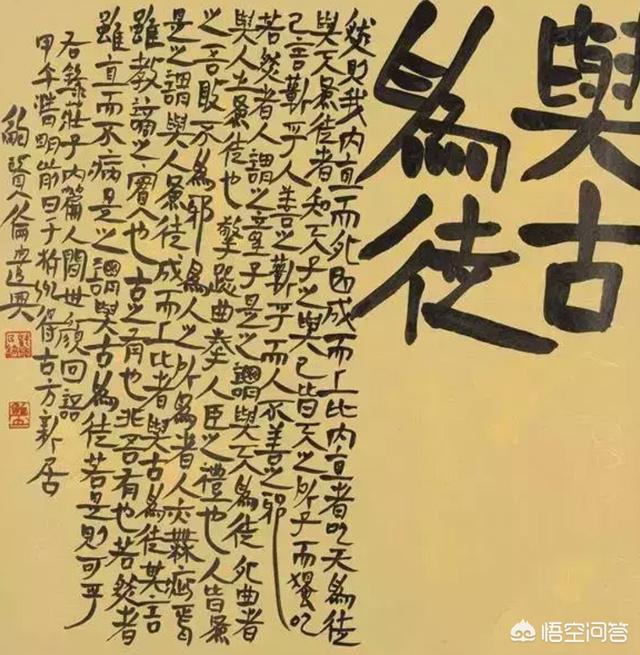 與古
為徒
然則我内直而外曲成而上比内直者以天為徒
與天為徒者知天子之與己皆天之所子而獨以
己言蘄乎人善之蘄乎而人不善之邪
若然者人謂之童子是之謂與天為徒外曲者
與人之為徒也擎跽曲拳人臣之禮也人皆為
之吾敢不為邪為人之所為者人亦無疵焉
是之謂與人為徒成而上比者與古為徒其言
雖教謫之實也古之有也非吾有也若然者
雖直而不病是之謂與古為徒若是則可乎
右錄莊子内篇人間世顏回語
甲午清明前日于杭州得古方新居
鮑賢倫
悟空问答